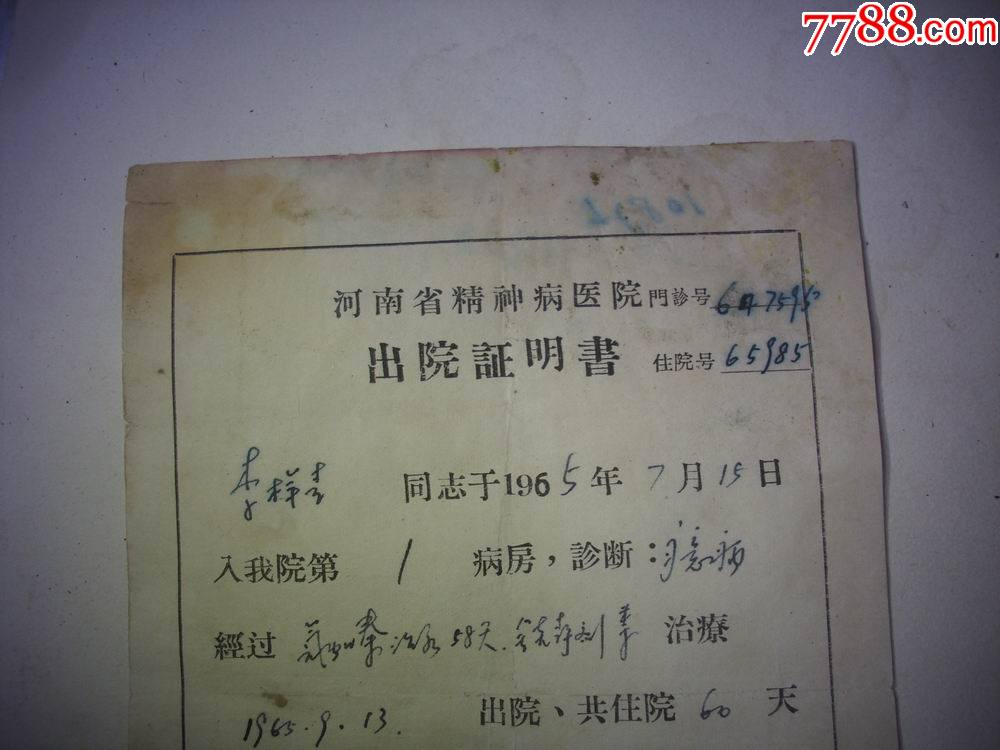 7788.com
河南省精神病医院 門診号 647595
出院証明書 住院号 65985
李祥 同志于1965年7月15日
入我院第 1 病房，診断：癔病
經过 氯丙嗪治 58天 治療
1965.9.13. 出院、共住院 60 天